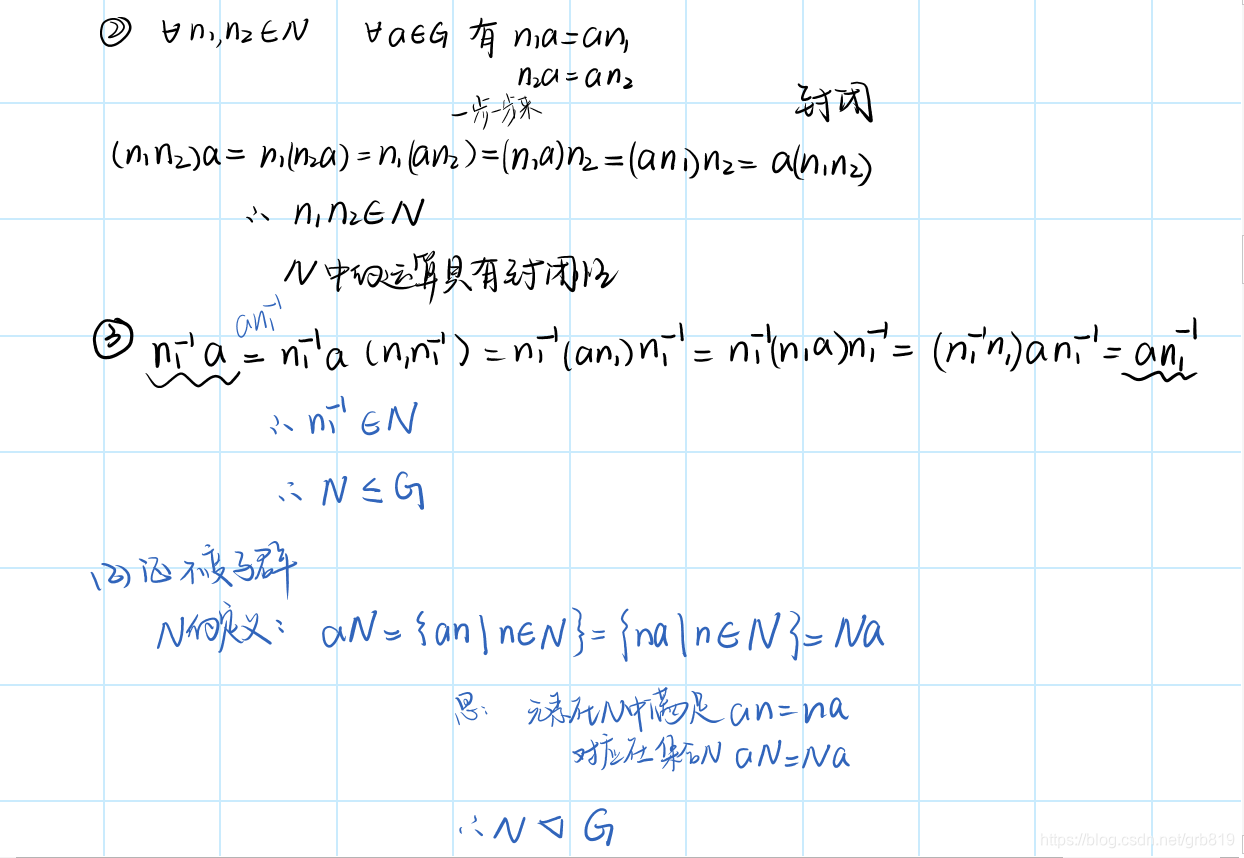 ② ∀n₁,n₂∈N ∀a∈G 有 n₁a=an₁
n₂a=an₂
一步一步来
封闭
(n₁n₂)a= n₁(n₂a)=n₁(an₂)=(n₁a)n₂=(an₁)n₂= a(n₁n₂)
∴ n₁n₂∈N
N中的运算具有封闭性
an₁⁻¹
③ n₁⁻¹a = n₁⁻¹a(n₁n₁⁻¹) = n₁⁻¹(an₁)n₁⁻¹ = n₁⁻¹(n₁a)n₁⁻¹ = (n₁⁻¹n₁)an₁⁻¹ = an₁⁻¹
∴ n₁⁻¹∈N
∴ N ≤ G
(2) 证不变子群
N的定义: aN={an|n∈N}={na|n∈N}=Na
思: 元素在N中满足 an=na
对应在集合N aN=Na
∴N ▽ G
https://blog.csdn.net/grb819